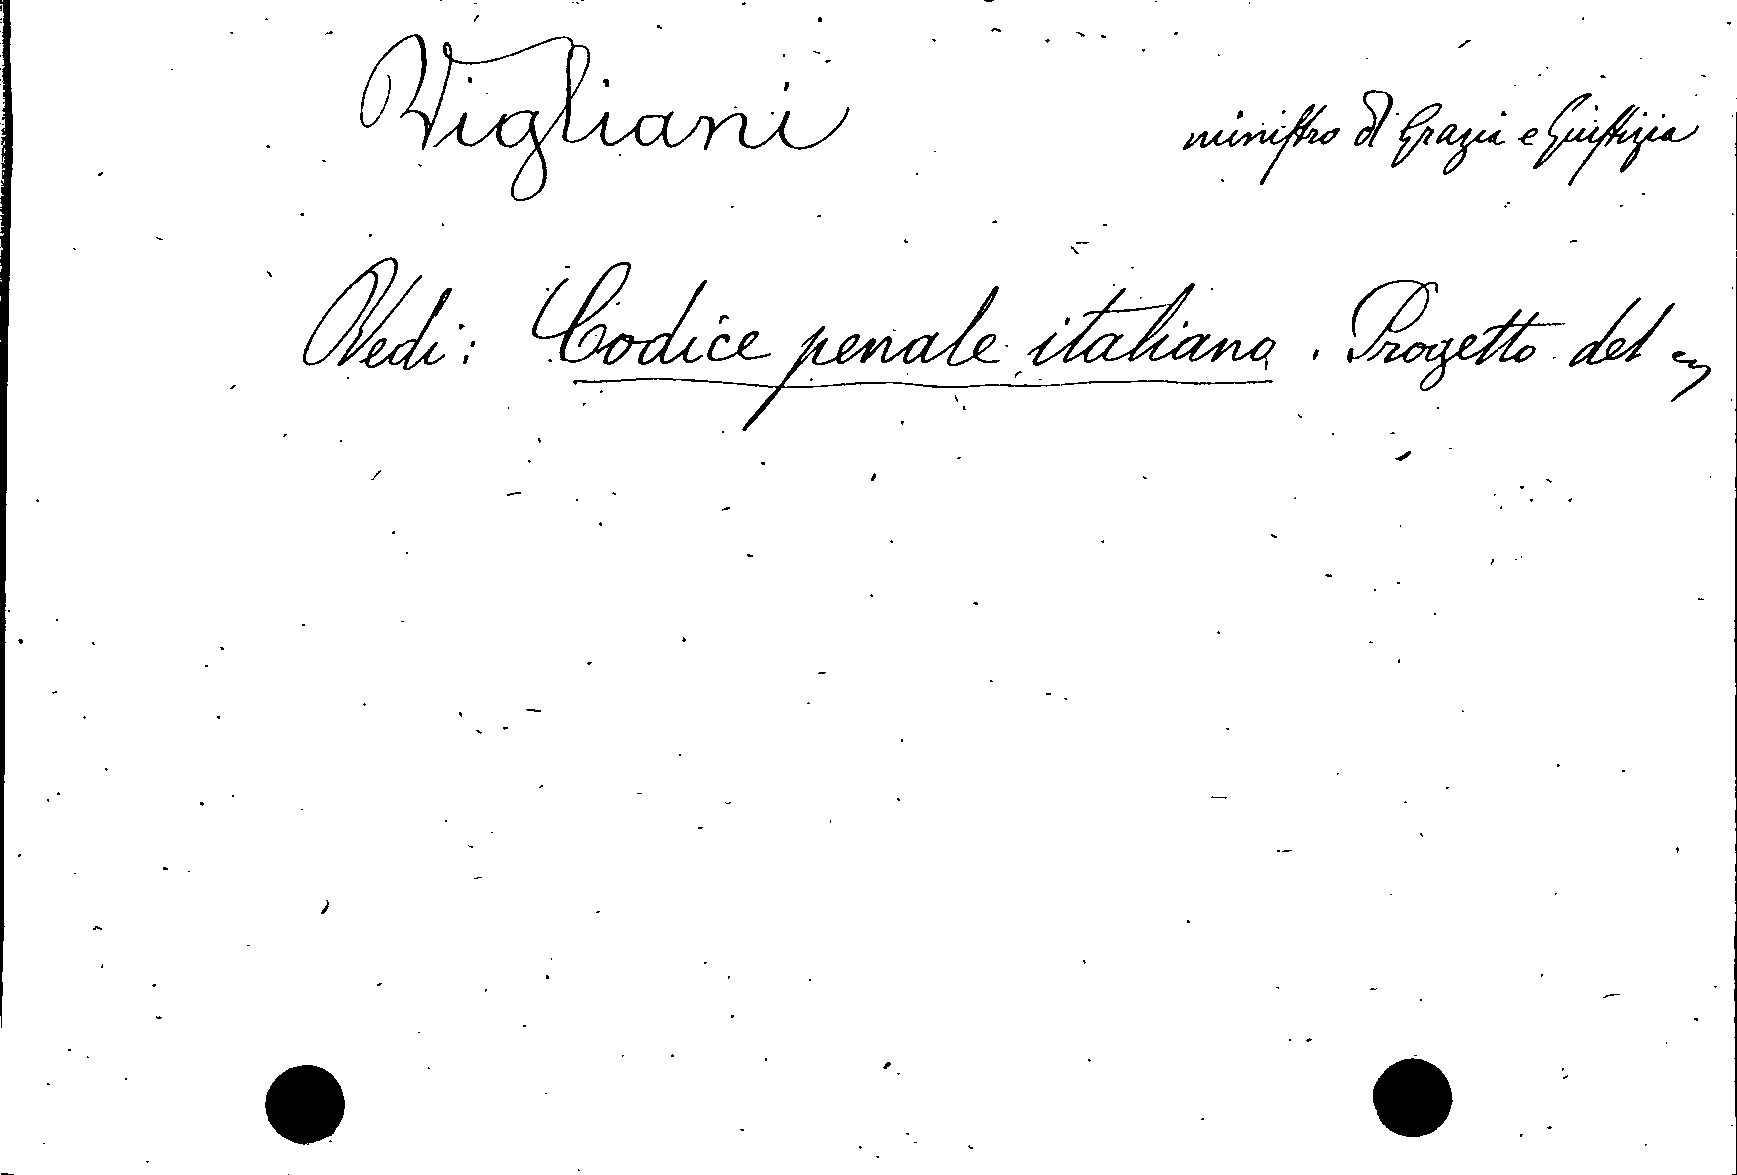 Vigliani ministro di Grazia e Giustizia
Vedi: Codice penale italiano. Progetto del